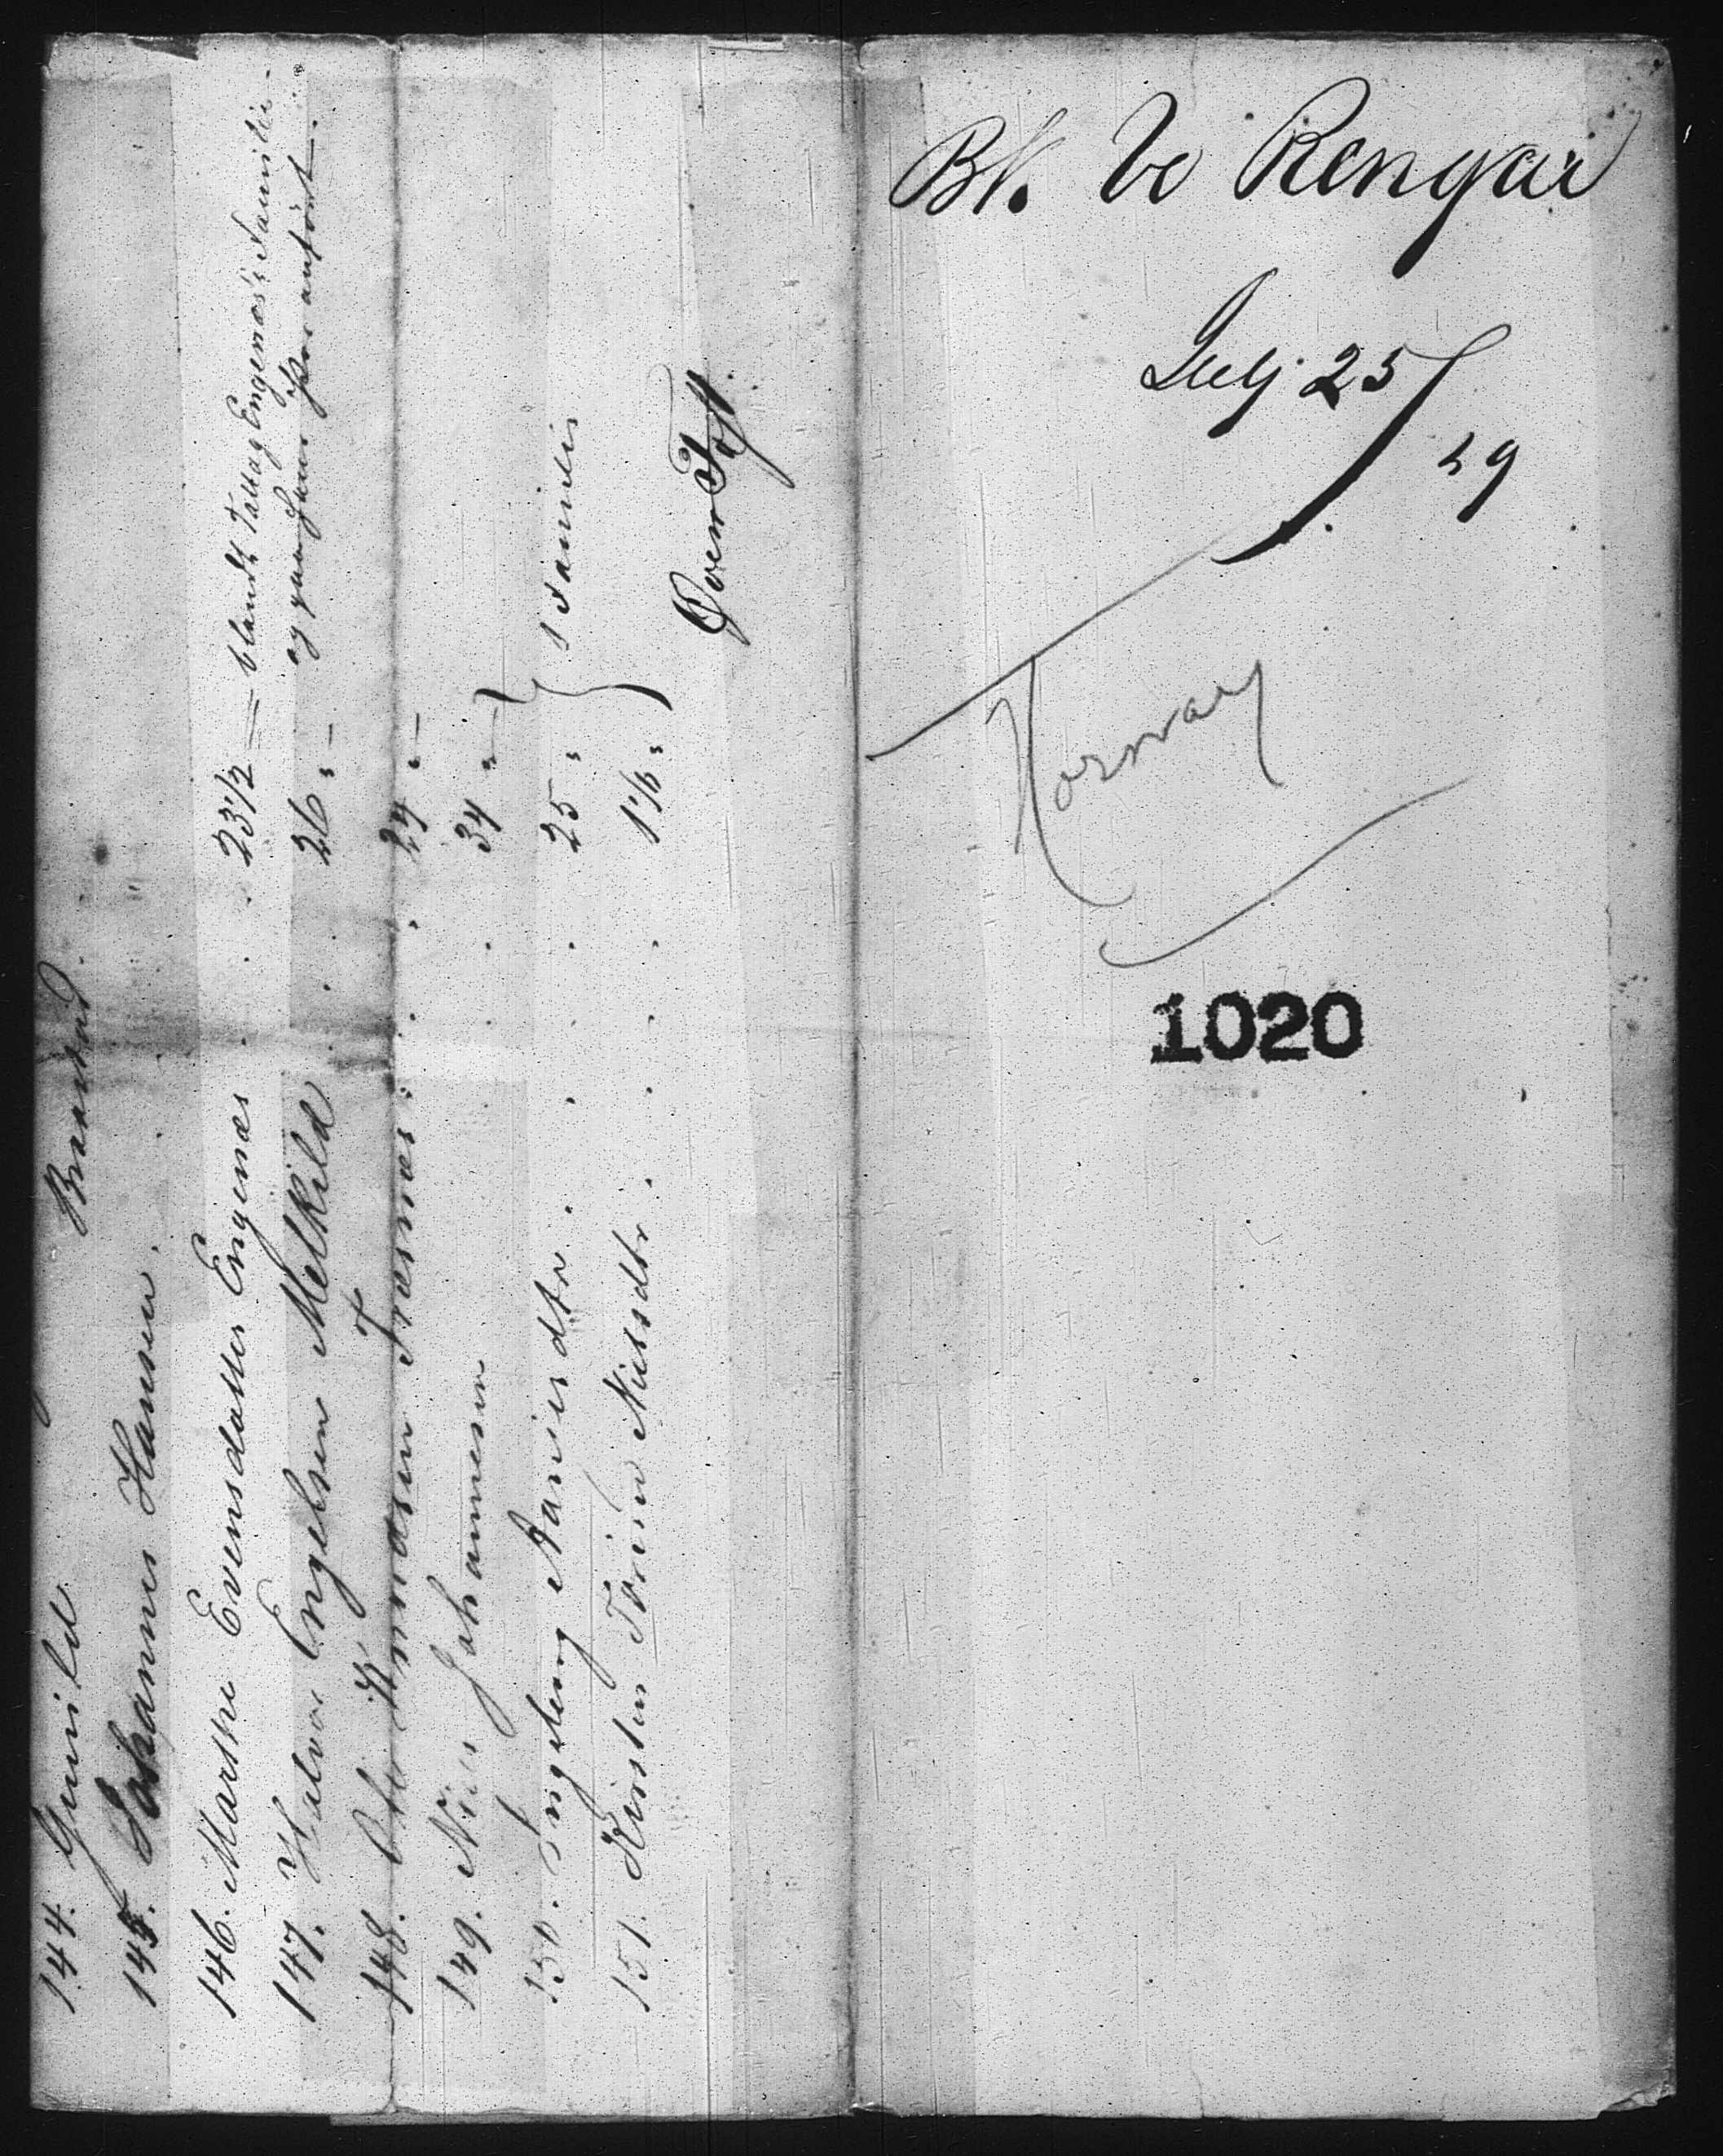 144. Gunild Bransrud.
145. Johannes Hansen.
146. Marthe Evensdatter Engenæs . . . 23 1/2 = blandt Tallag Engenæs's Familie
147. Halvor Engelsen Melkild . . 26 " — og paa ham
148. Knudsen Træsnæs . . . 24 " —
149. Niels Johannesen . . 34 " —
150. Ingeborg Danielsdtr . . . . 25 " 1 Familie
151. Kirsten Torine Nielsdtr . . . . 1 1/6 "
Sven Foyn
Bk. Ve Rengai
July 25/49
Norway
1020